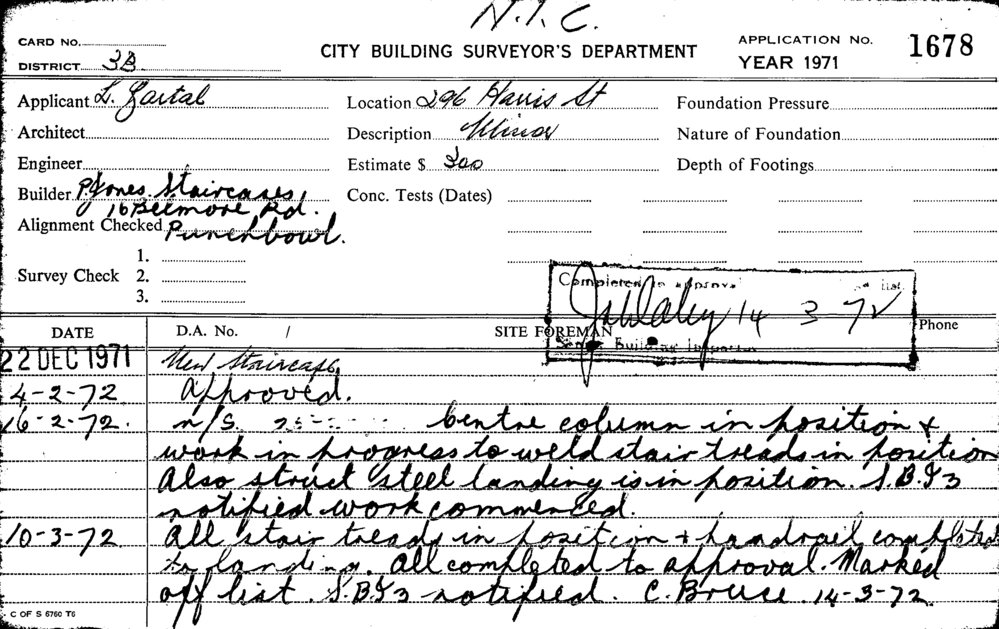 N.I.C.
CARD No.
DISTRICT 3B
CITY BUILDING SURVEYOR'S DEPARTMENT
APPLICATION No. 1678
YEAR 1971
Applicant L. Zartal
Location 296 Harris St
Foundation Pressure
Architect
Description Minor
Nature of Foundation
Engineer
Estimate $ 300
Depth of Footings
Builder P. Jones. Staircases,
16 Belmore Rd.
Punchbowl.
Conc. Tests (Dates)
Alignment Checked
Survey Check
1.
2.
3.
Completed to approval list
14 3 72
Building Inspector
DATE
D.A. No. /
SITE FOREMAN
Phone
22 DEC 1971 New Staircase,
4-2-72 Approved.
16-2-72. n/S. Centre column in position &
work in progress to weld stair treads in position
Also struct steel landing is in position. S.B.I3
notified work commenced.
10-3-72 All stair treads in position & handrail completed
to landing. All completed to approval. Marked
off list. S.B.I3 notified. C. Bruce. 14-3-72.
C OF S 6760 T6